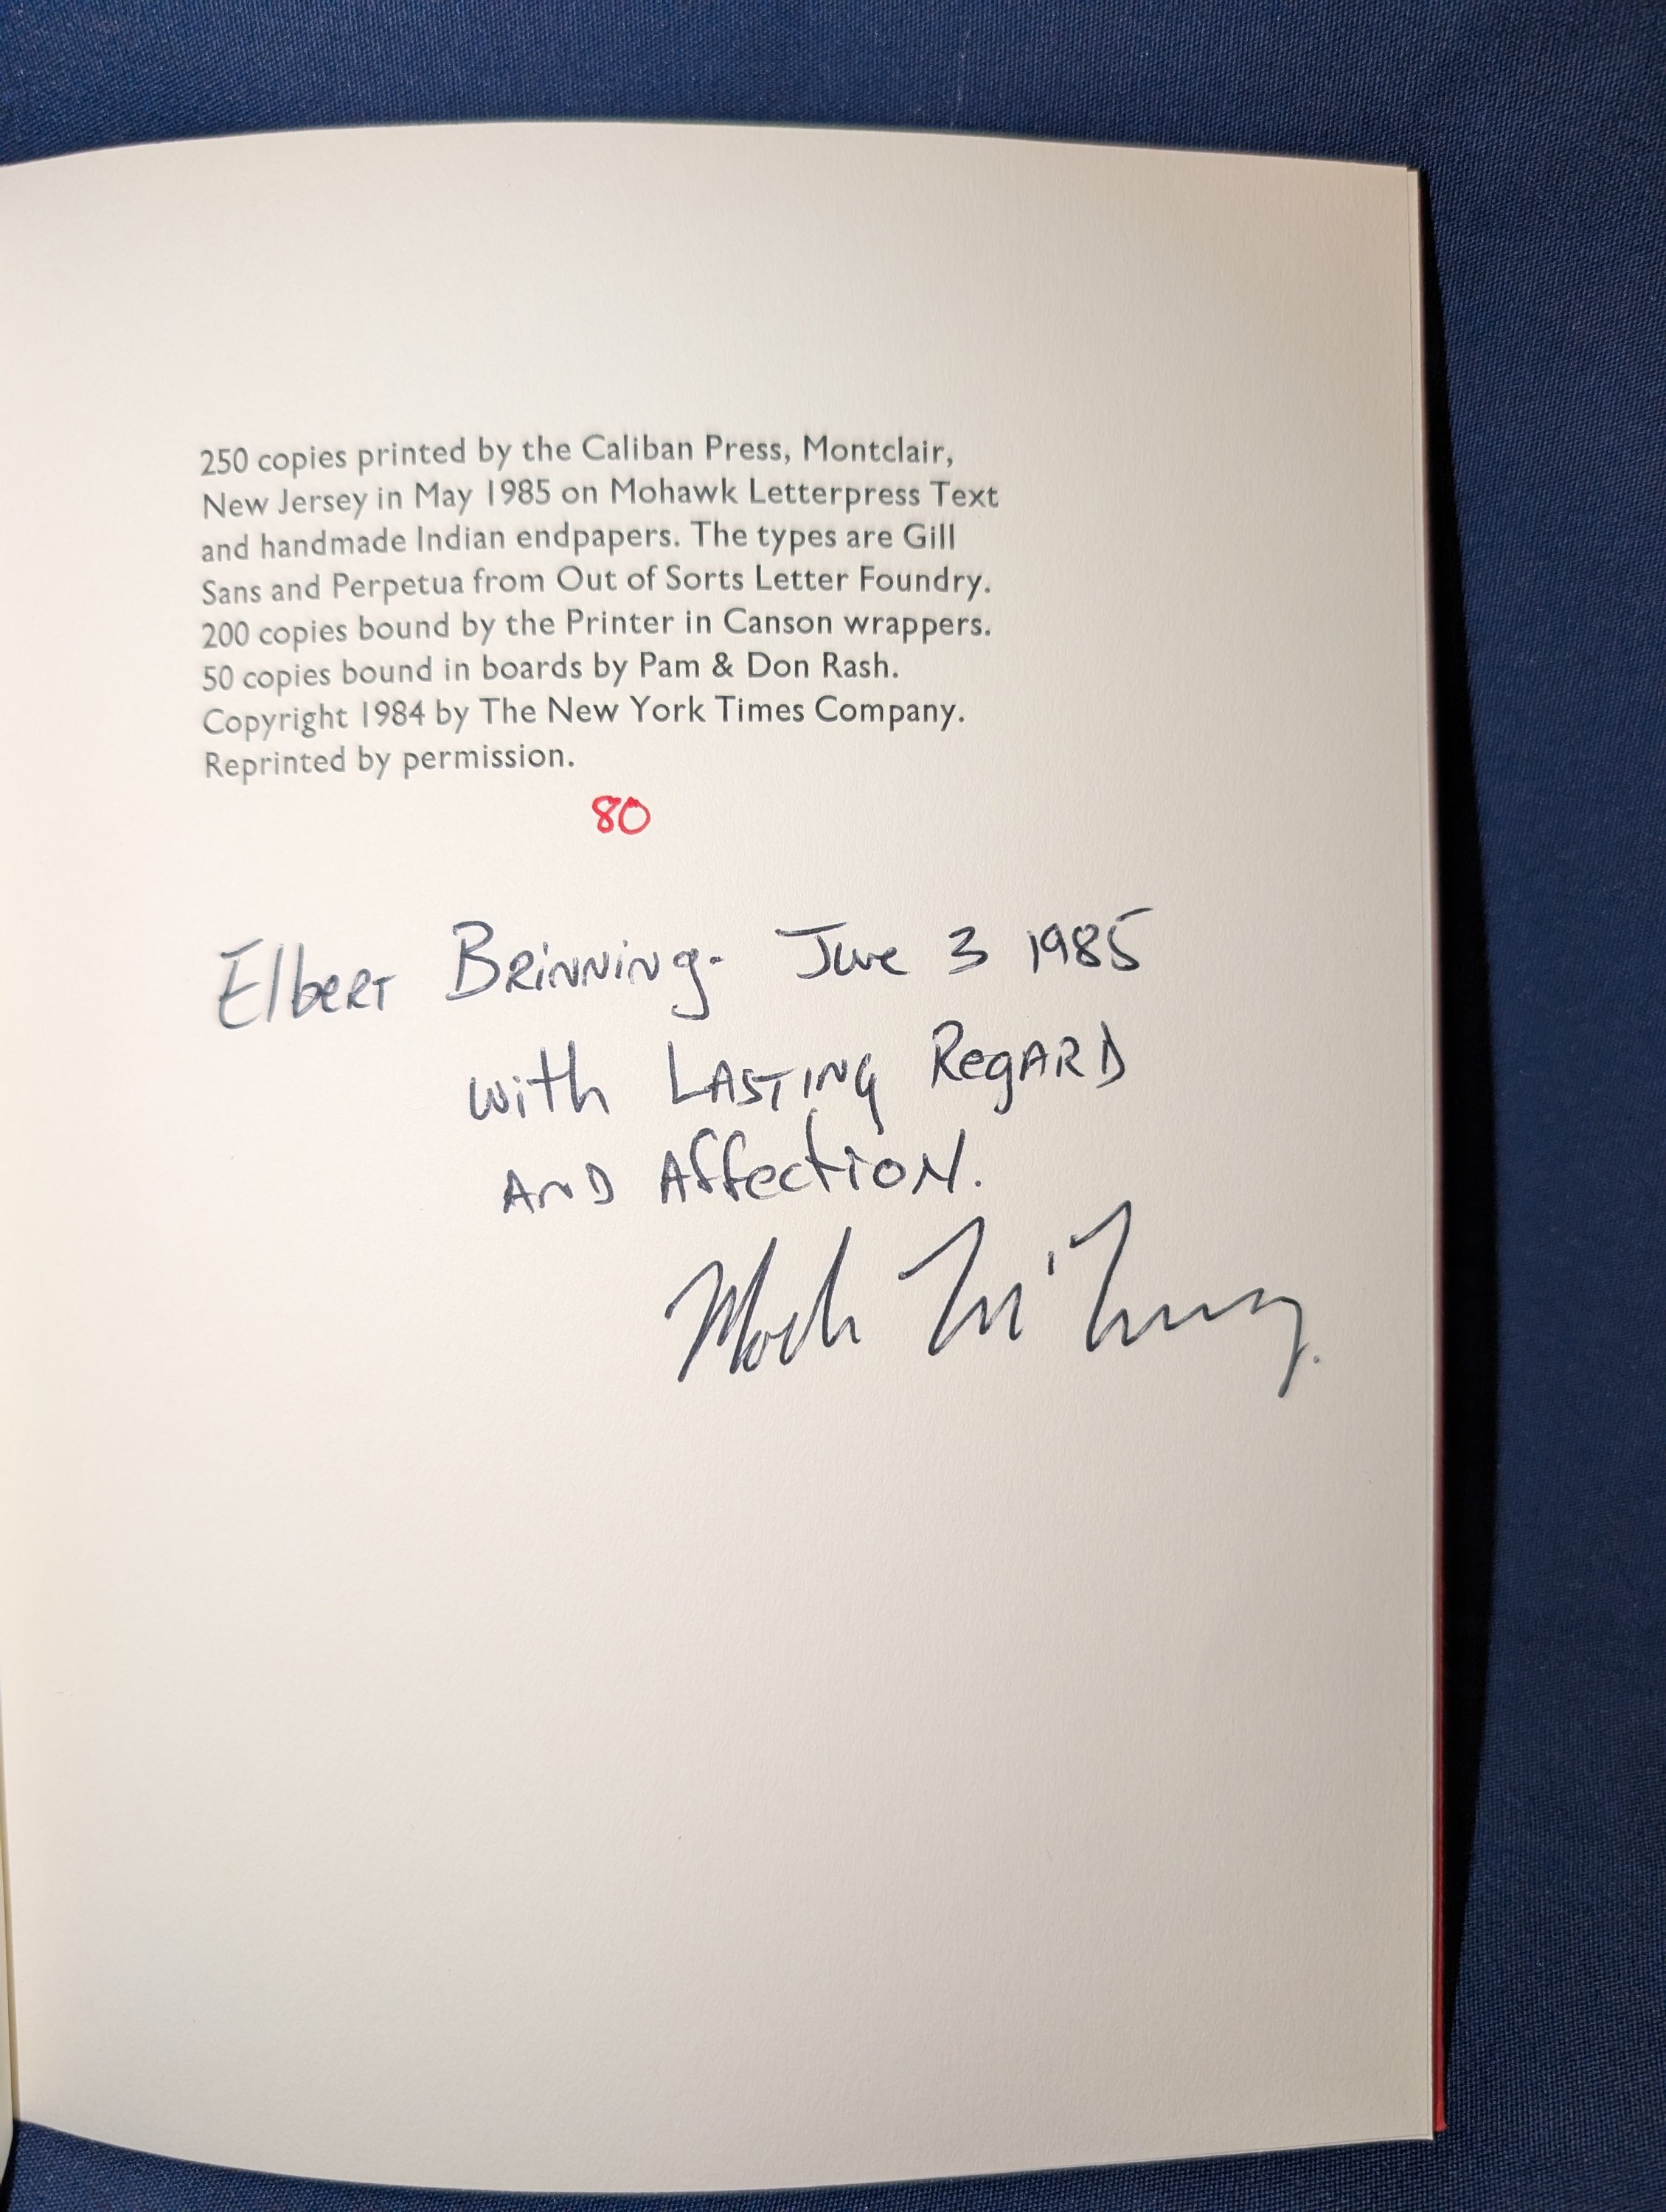 250 copies printed by the Caliban Press, Montclair,
New Jersey in May 1985 on Mohawk Letterpress Text
and handmade Indian endpapers. The types are Gill
Sans and Perpetua from Out of Sorts Letter Foundry.
200 copies bound by the Printer in Canson wrappers.
50 copies bound in boards by Pam & Don Rash.
Copyright 1984 by The New York Times Company.
Reprinted by permission.
80
Elbert Brinning. June 3 1985
with Lasting Regard
And Affection.